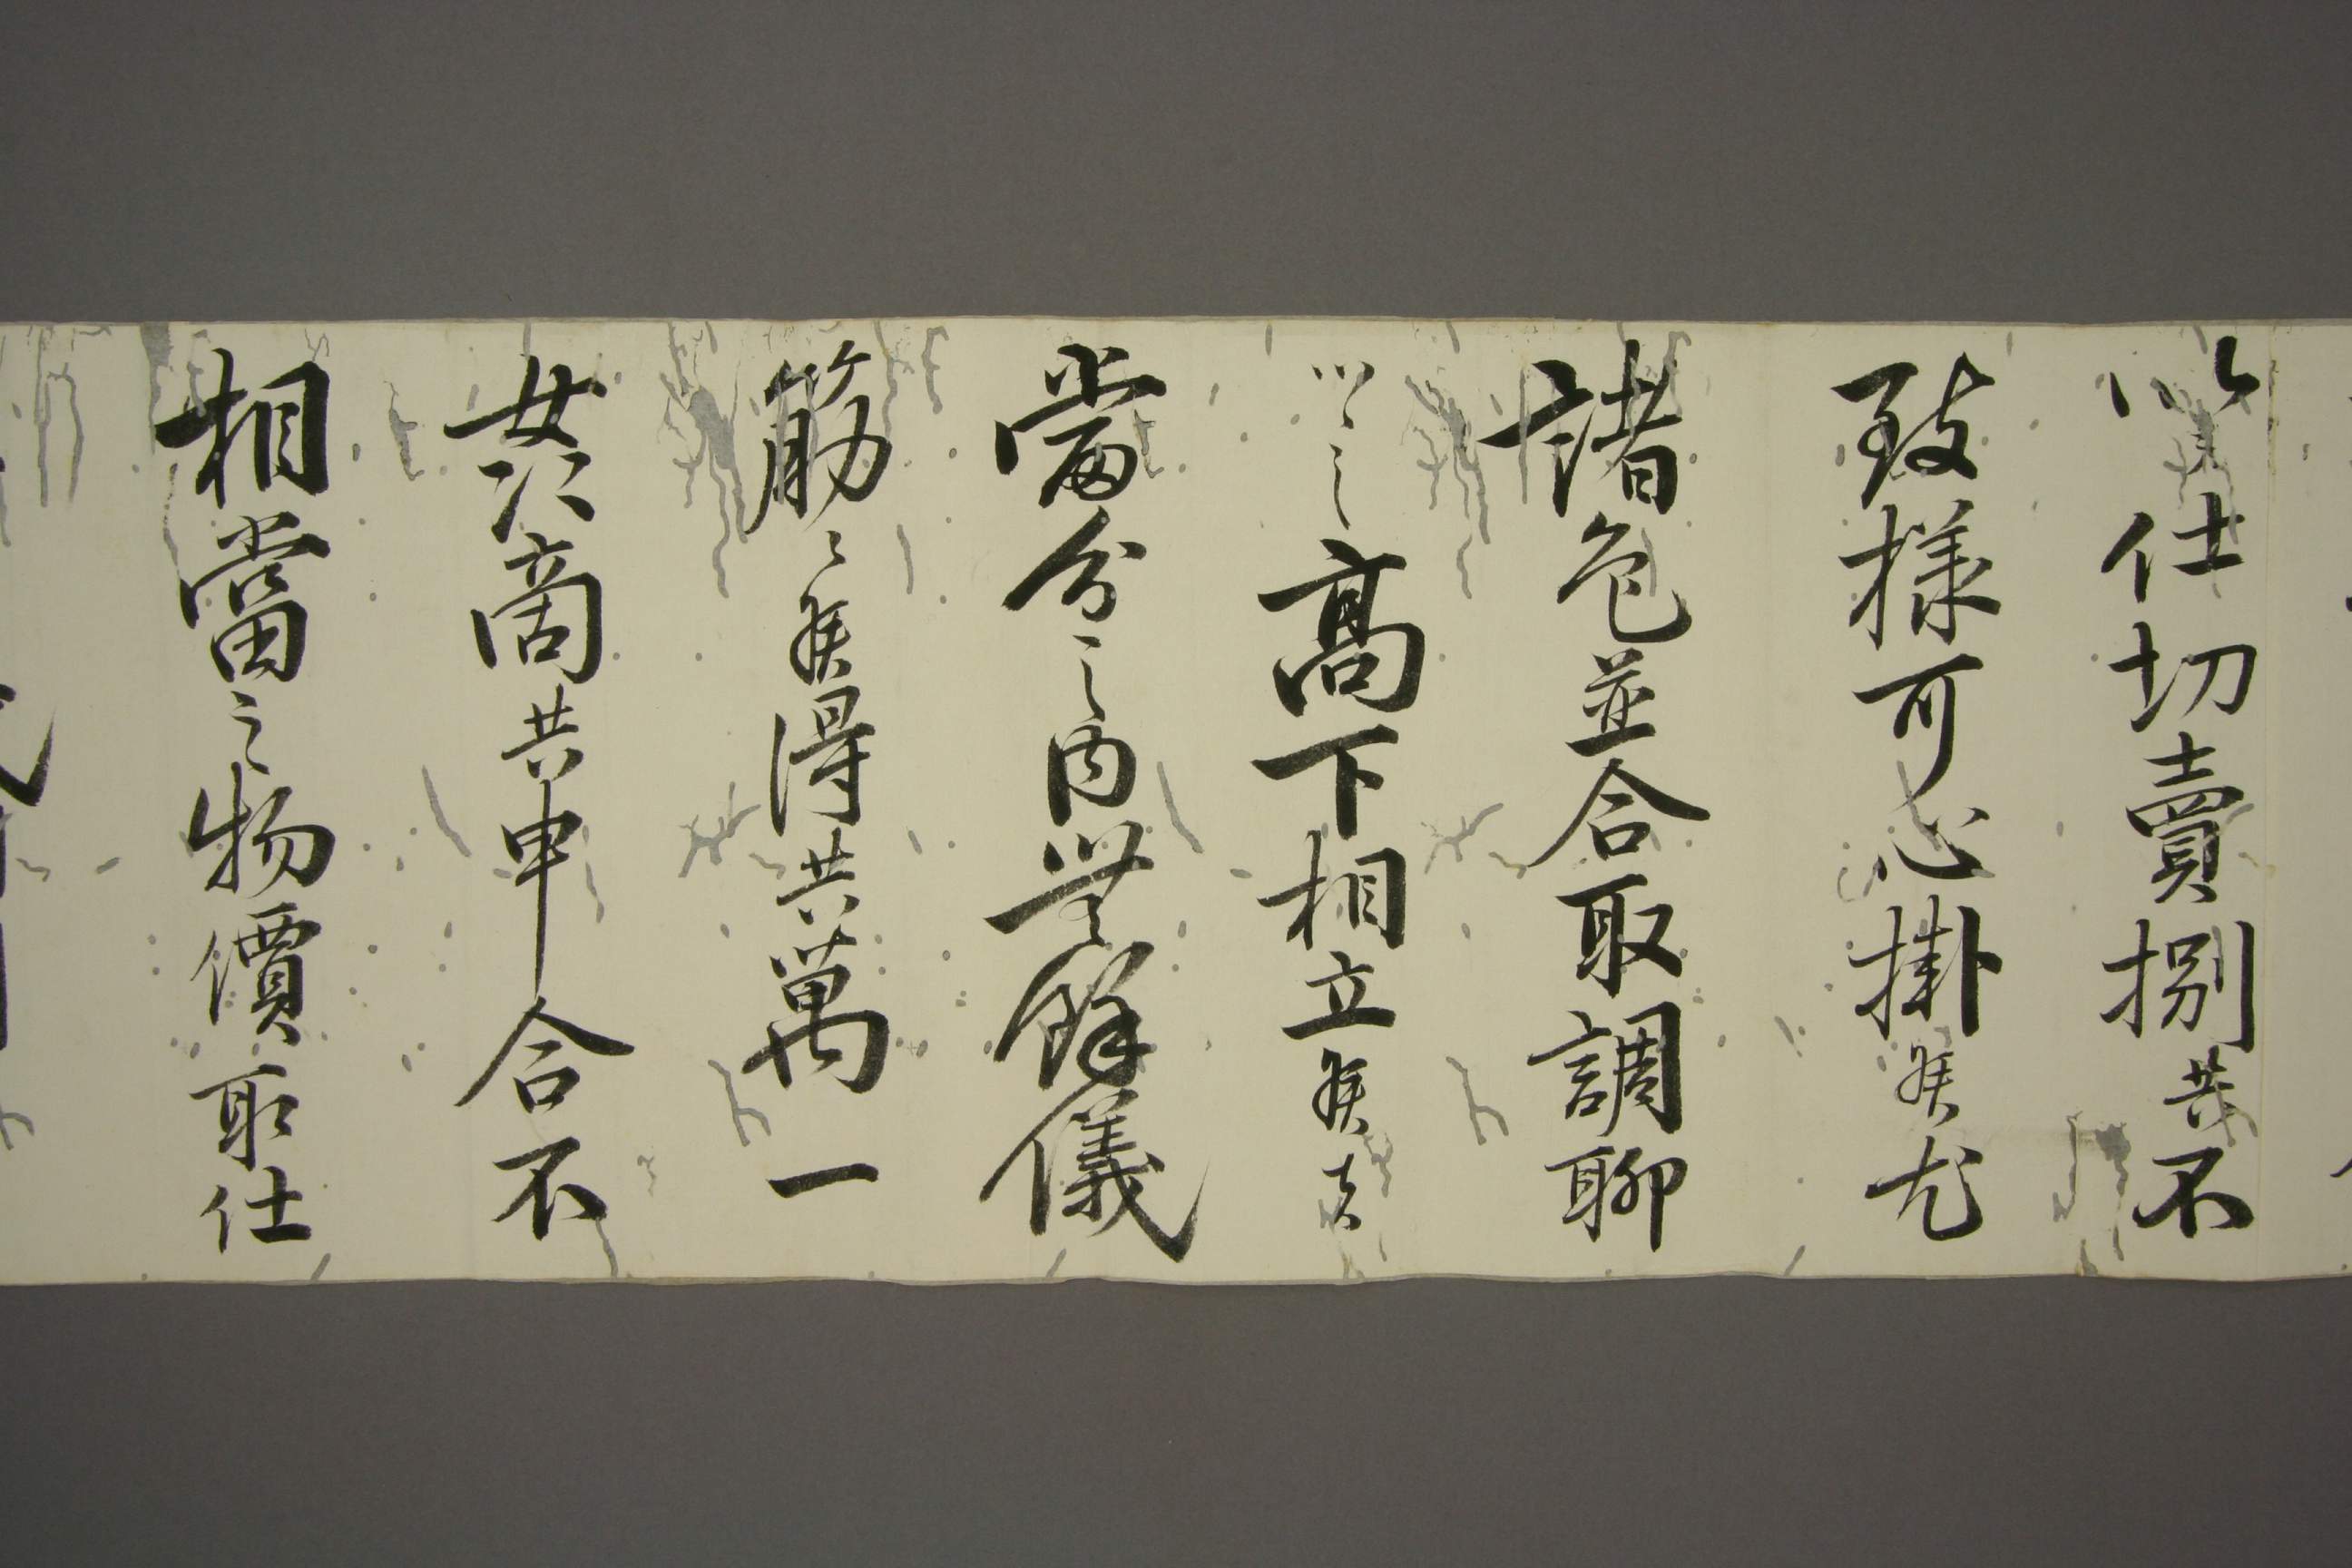 仕切賣捌共不
致様可心掛候尤
諸色並合取調聊
之高下相立候者
當分之内無餘儀
筋々候得共萬一
奸商共申合不
相當之物價取仕